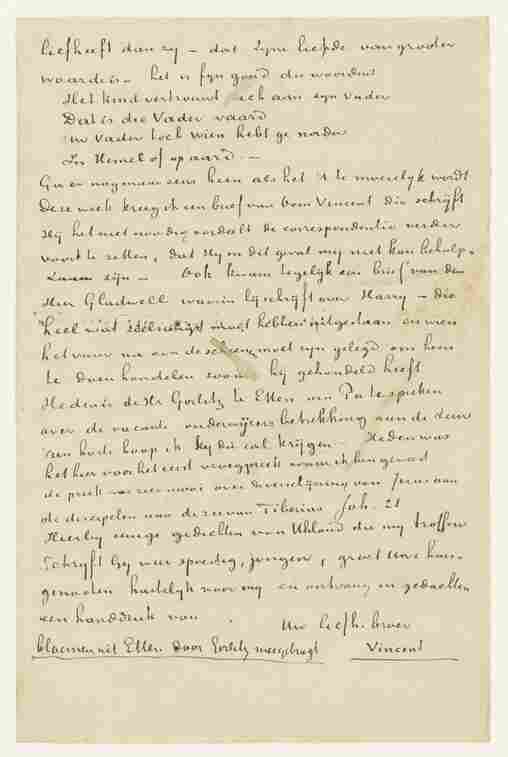 liefheeft dan zy – dat Zyne liefde van grooter
waarde is – het is fyn goud die woorden
Het kind vertrouwt zich aan zyn vader
Dat is die Vader waard
Uw Vader toch wien hebt ge nader
In Hemel of op aard. –
Ga er nog maar eens heen als het 't te moeielyk wordt
Deze week kreeg ik een brief van Oom Vincent die schrijft
Hij het niet noodig oordeelt de correspondentie verder
voort te zetten, dat Hy in dit geval my niet kan behulp-
zaam zijn – Ook kwam tegelyk een brief van den
Heer Gladwell waarin hij schrijft over Harry – die
heel wat moet hebben uitgestaan en wien
het vuur na aan de scheenen moet zyn gelegd om hem
te doen handelen zooals hij gehandeld heeft
Heden is de Hr Gorlitz te Etten om Pa te spreken
over de vacante onderwijzers betrekking aan de Leur
van harte hoop ik Hij die zal krijgen. Heden was
het hier voor het eerst vroegpreek waarin ik ben geweest
de preek was zeer mooi over de verschijning van Jezus aan
de discipelen aan de zee van Tiberias Joh. 21
Hierby eenige gedichten van Uhland die my troffen
Schryft Gy weer spoedig, jongen, groet Uwe huis-
genooten hartelyk voor my en ontvang in gedachten
een handdruk van
Uw liefh. broer
bloemen uit Etten door Gorlitz meegebragt Vincent